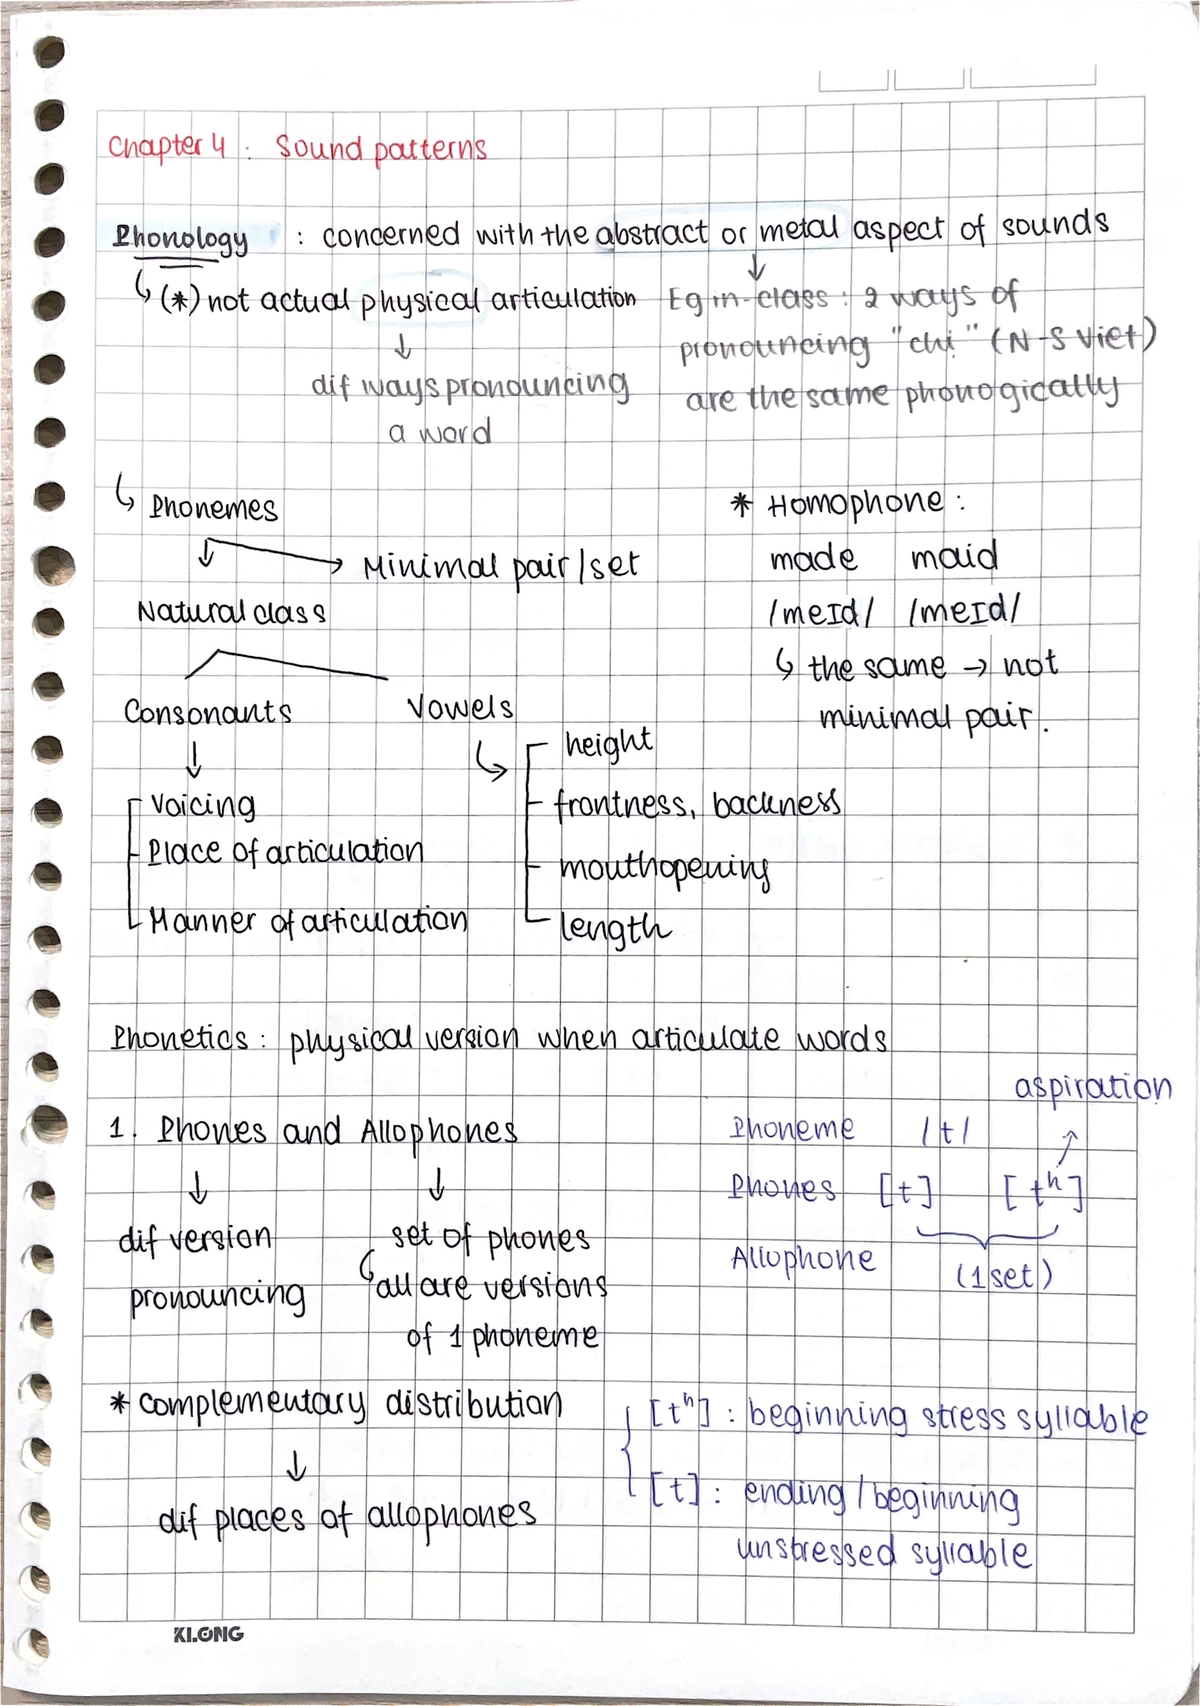 Chapter 4 : Sound patterns
Phonology : concerned with the abstract or metal aspect of sounds
(*) not actual physical articulation
dif ways pronouncing
a word
Eg in-class : 2 ways of
pronouncing "chị" (N-S Viet)
are the same phonogically
Phonemes
Minimal pair/set
Natural class
Consonants
Vowels
Voicing
Place of articulation
Manner of articulation
height
frontness, backness
mouthopening
length
* Homophone :
made maid
/meɪd/ /meɪd/
the same → not
minimal pair.
Phonetics : physical version when articulate words
1. Phones and Allophones
dif version
pronouncing
set of phones
all are versions
of 1 phoneme
aspiration
Phoneme /t/
Phones [t] [tʰ]
Allophone
(1 set)
* complementary distribution
dif places of allophones
[tʰ] : beginning stress syllable
[t] : ending / beginning
unstressed syllable
KLONG